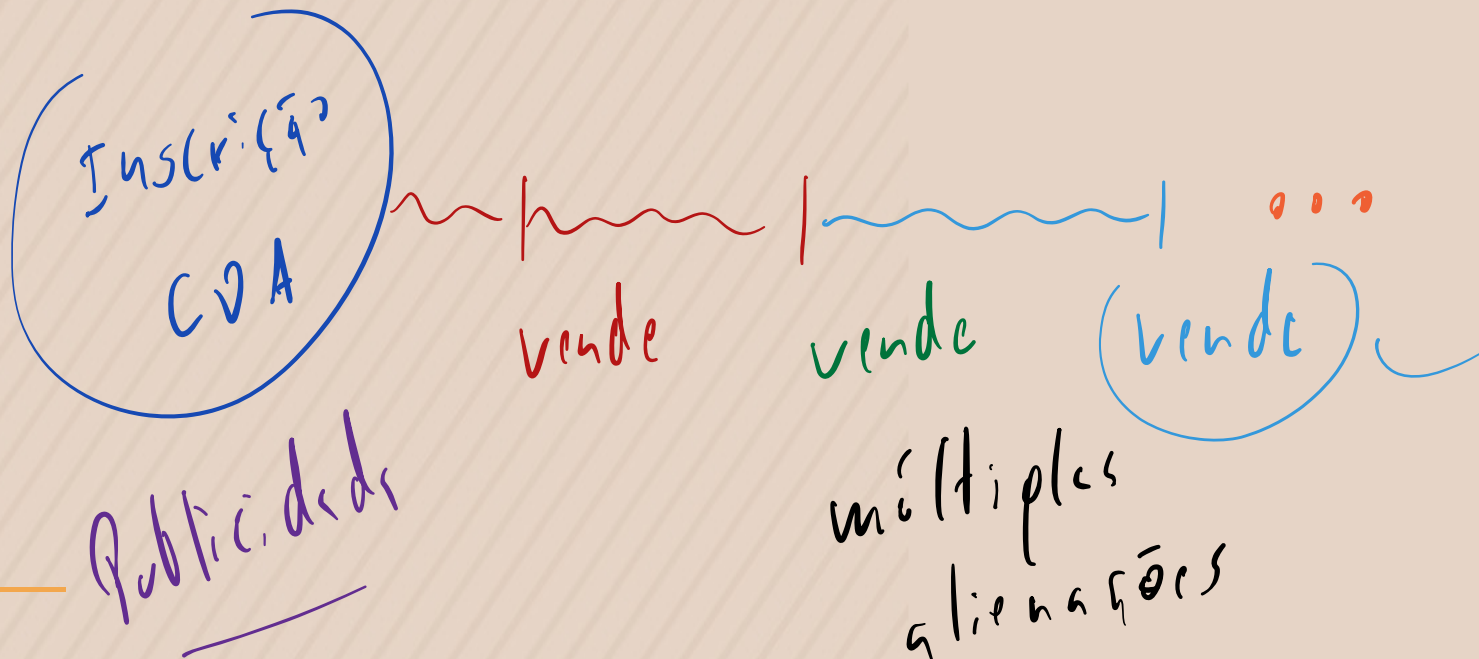 Inscrição
CDA
vende
vende
vende
Publicidade
múltiplas
alienações